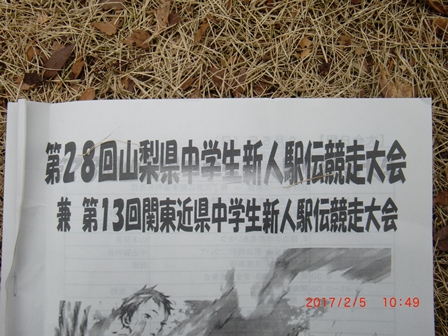 第28回山梨県中学生新人駅伝競走大会
兼 第13回関東近県中学生新人駅伝競走大会
2017/2/5 10:49